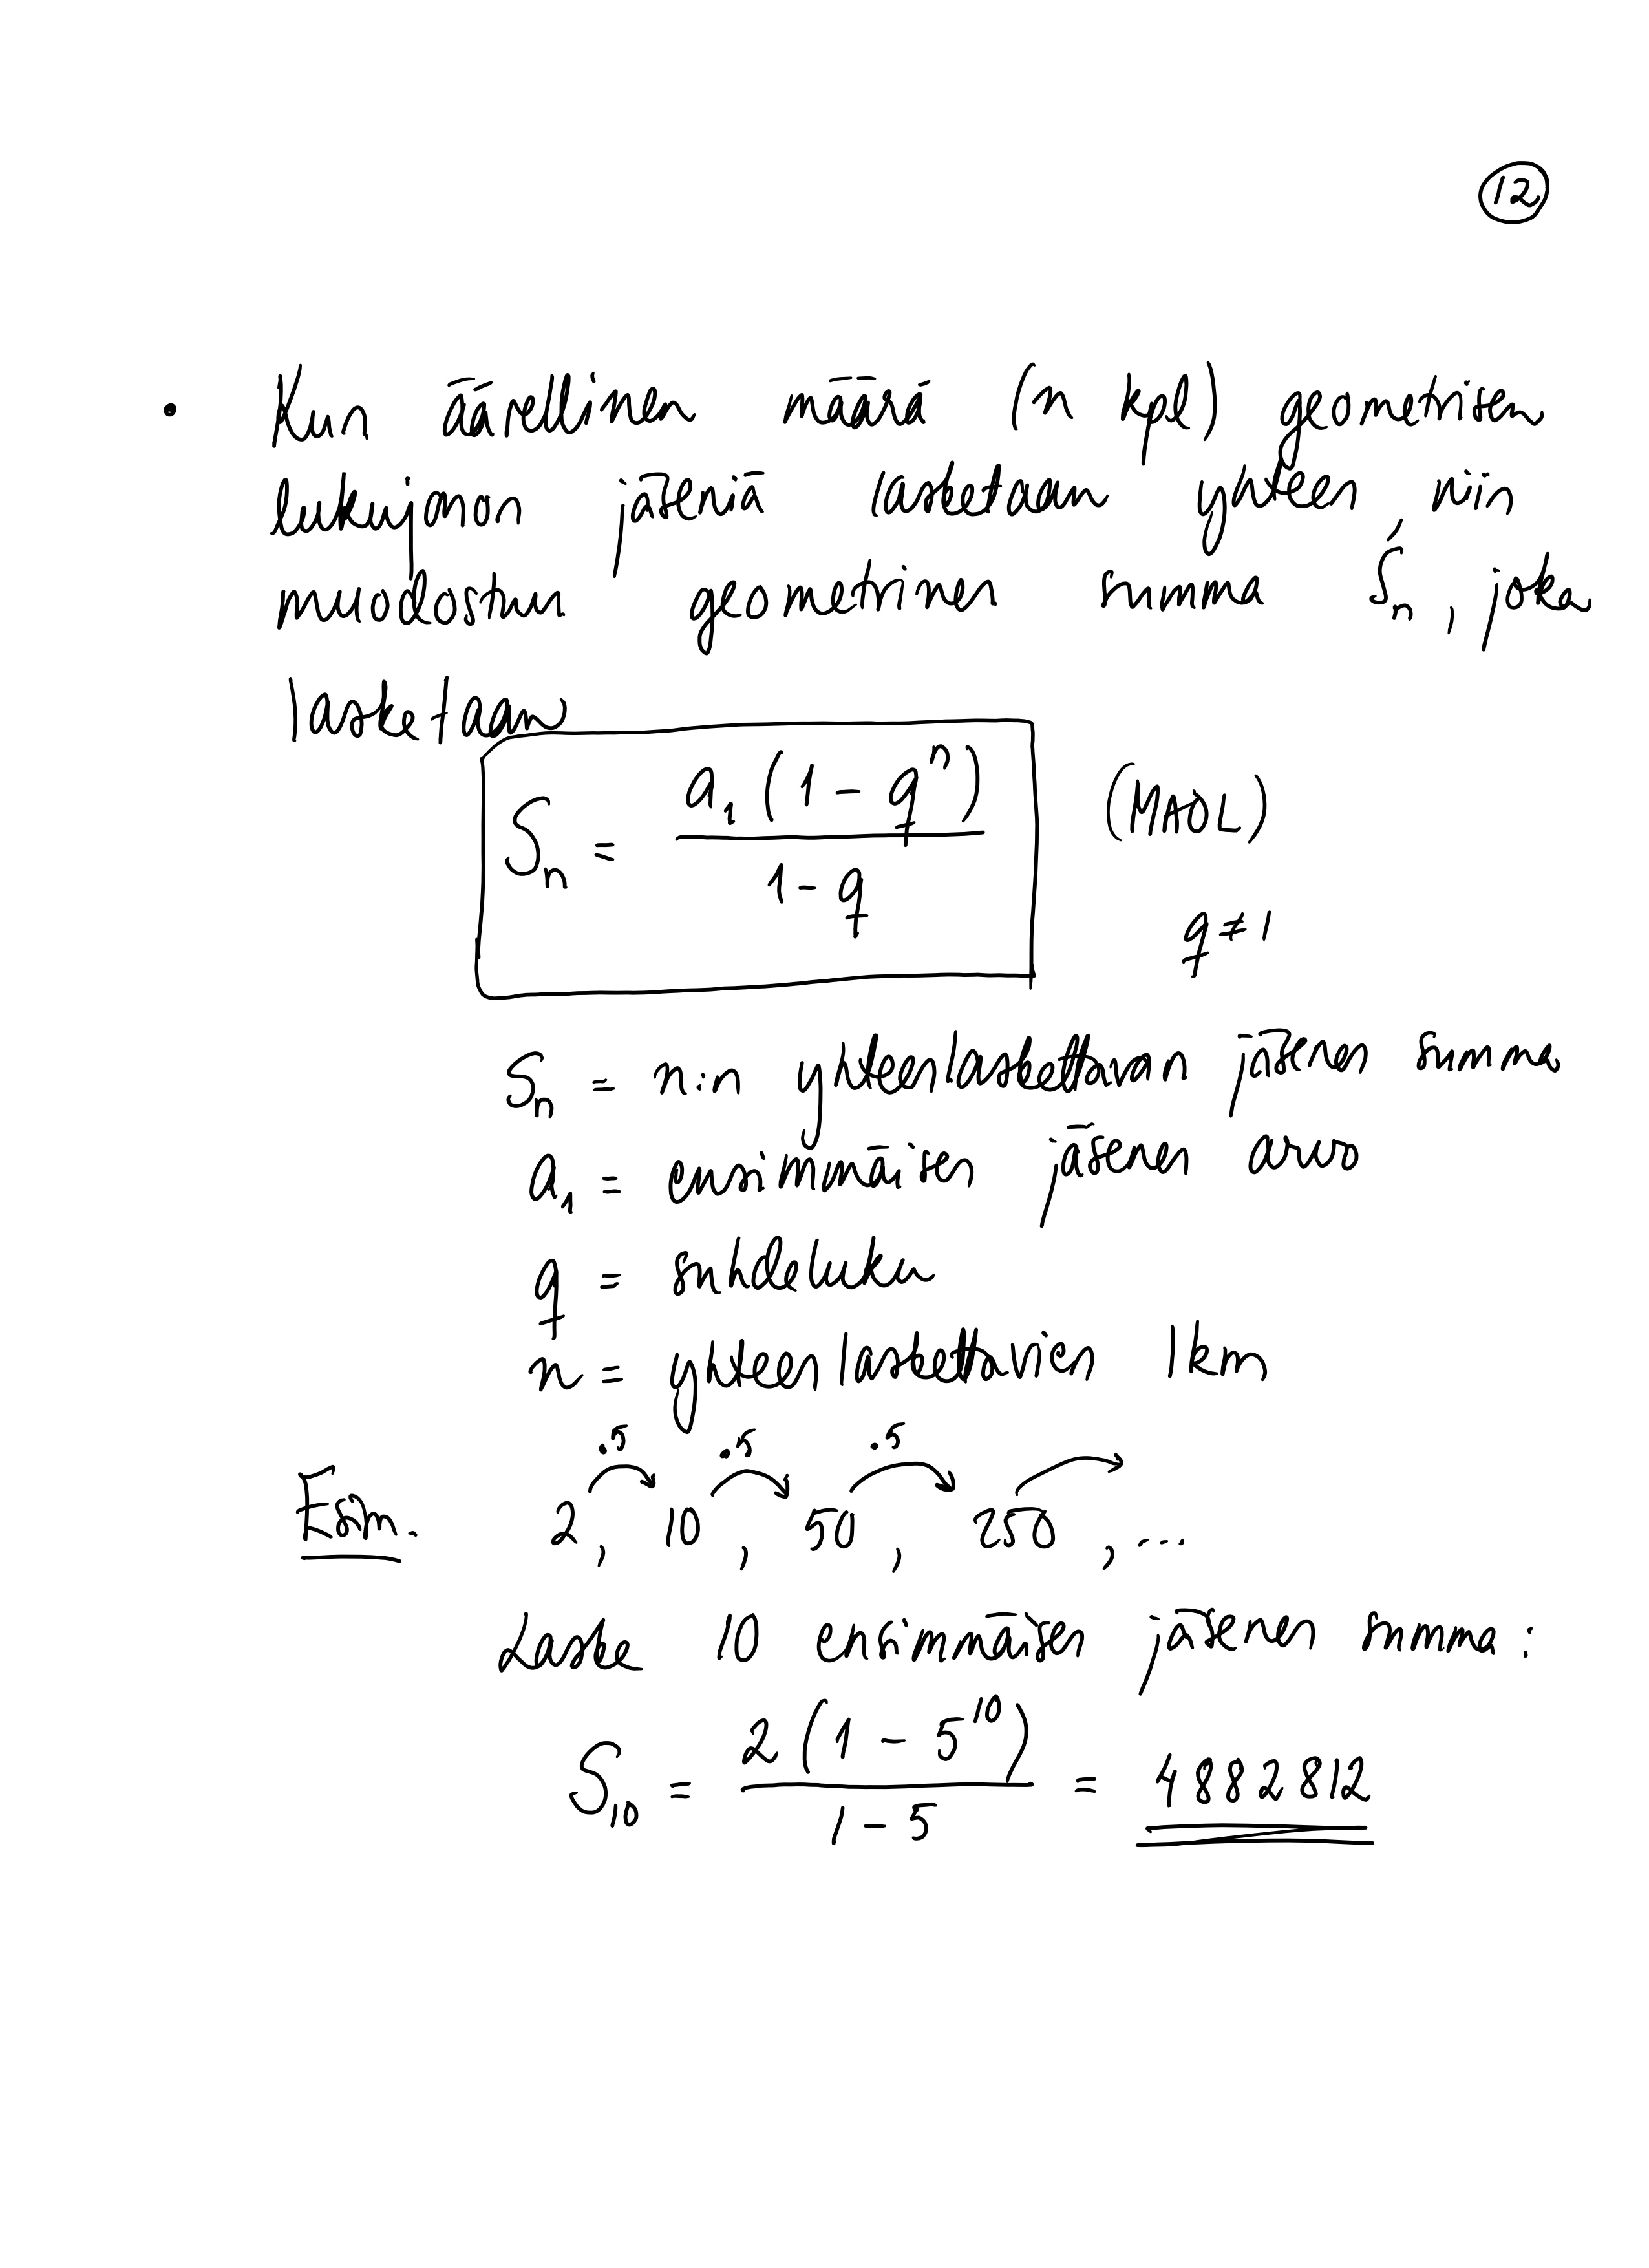 12
• Kun äärellinen määrä (n kpl) geometrisen
lukujonon jäseniä lasketaan yhteen niin
muodostuu geometrinen summa Sn, joka
lasketaan
Sn = a1 (1 - q^n) / 1 - q (MAOL)
q ≠ 1
Sn = n:n yhteenlaskettavan jäsenen summa
a1 = ensimmäisen jäsenen arvo
q = suhdeluku
n = yhteenlaskettavien lkm
·5 ·5 ·5
Esim. 2, 10, 50, 250, ...
Laske 10 ensimmäisen jäsenen summa:
S10 = 2 (1 - 5^10) / 1 - 5 = 4882812